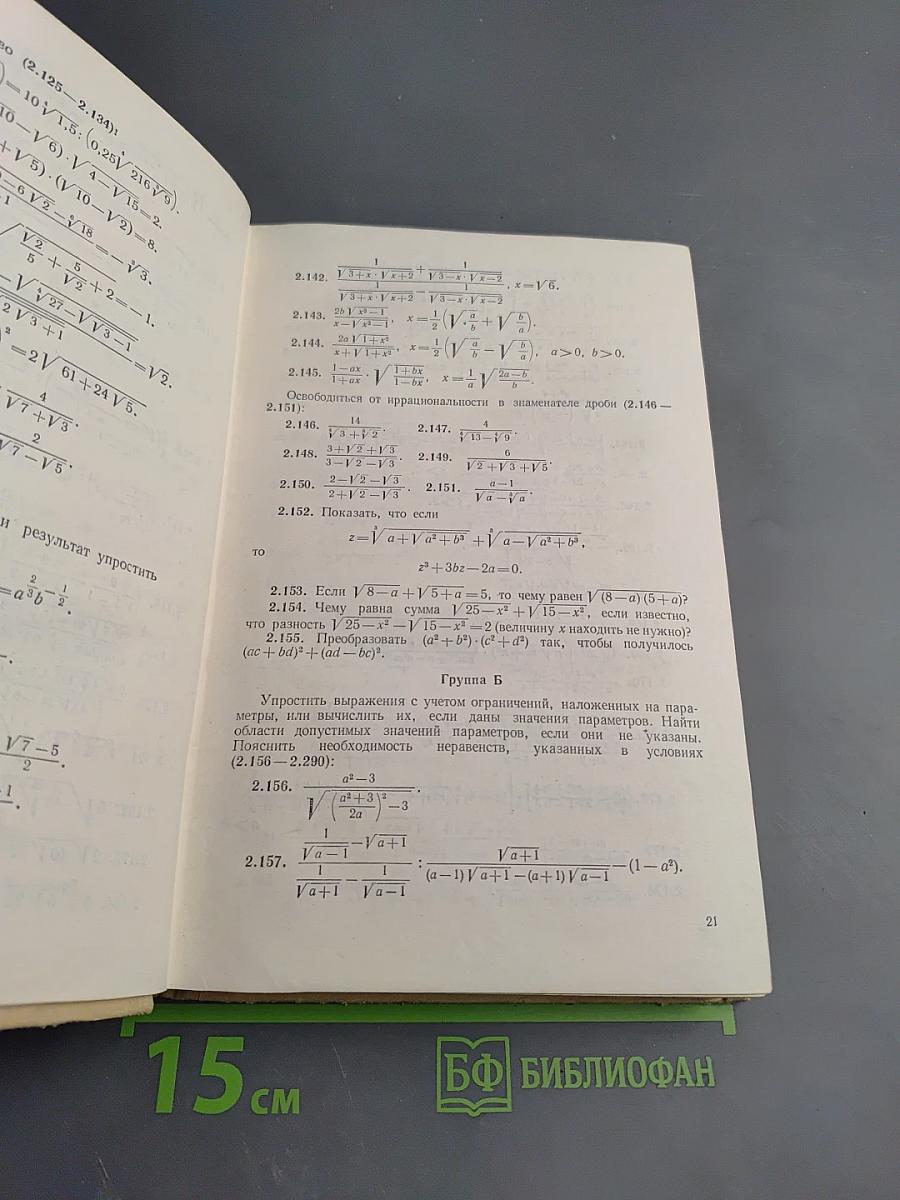 во (2.125—2.134):
) = 10 ⁴√1,5 : (0,25 ⁴√(216 ³√9)).
10 − √6) · √(4 − √15) = 2.
+ √5) · (√10 − √2) = 8.
− 6√2 − ⁶√18
= − ³√3.
√(√2/5 + 5/√2 + 2 = − 1.
= √2.
= 2√(61 + 24√5).
4/(√7 + √3).
2/(√7 − √5).
и результат упростить
= a^(2/3) b^(−1/2).
(√7 − 5)/2.
2.142. (1/(√(3+x) · √(x+2)) + 1/(√(3−x) · √(x−2))) / (1/(√(3+x) · √(x+2)) − 1/(√(3−x) · √(x−2))), x = √6.
2.143. 2b√(x²−1)/(x − √(x²−1)), x = 1/2 (√(a/b) + √(b/a)).
2.144. 2a√(1+x²)/(x + √(1+x²)), x = 1/2 (√(a/b) − √(b/a)), a > 0, b > 0.
2.145. (1−ax)/(1+ax) · √((1+bx)/(1−bx)), x = 1/a √((2a−b)/b).
Освободиться от иррациональности в знаменателе дроби (2.146 —
2.151):
2.146. 14/(⁴√3 + ⁸√2). 2.147. 4/(⁴√13 − ⁴√9).
2.148. (3+√2+√3)/(3−√2−√3). 2.149. 6/(√2+√3+√5).
2.150. (2−√2−√3)/(2+√2−√3). 2.151. (a−1)/(√a − ³√a).
2.152. Показать, что если
z = ³√(a + √(a² + b³)) + ³√(a − √(a² + b³)),
то
z³ + 3bz — 2a = 0.
2.153. Если √(8−a) + √(5+a) = 5, то чему равен √((8−a)(5+a))?
2.154. Чему равна сумма √(25−x²) + √(15−x²), если известно,
что разность √(25−x²) − √(15−x²) = 2 (величину x находить не нужно)?
2.155. Преобразовать (a² + b²)·(c² + d²) так, чтобы получилось
(ac + bd)² + (ad — bc)².
Группа Б
Упростить выражения с учетом ограничений, наложенных на пара-
метры, или вычислить их, если даны значения параметров. Найти
области допустимых значений параметров, если они не указаны.
Пояснить необходимость неравенств, указанных в условиях
(2.156—2.290):
2.156. (a² − 3)/√(((a²+3)/2a)² − 3).
2.157. (1/√(a−1) − √(a+1))/(1/√(a+1) − 1/√(a−1)) : √(a+1)/((a−1)√(a+1) − (a+1)√(a−1)) − (1 − a²).
21
15 см
БФ БИБЛИОФАН